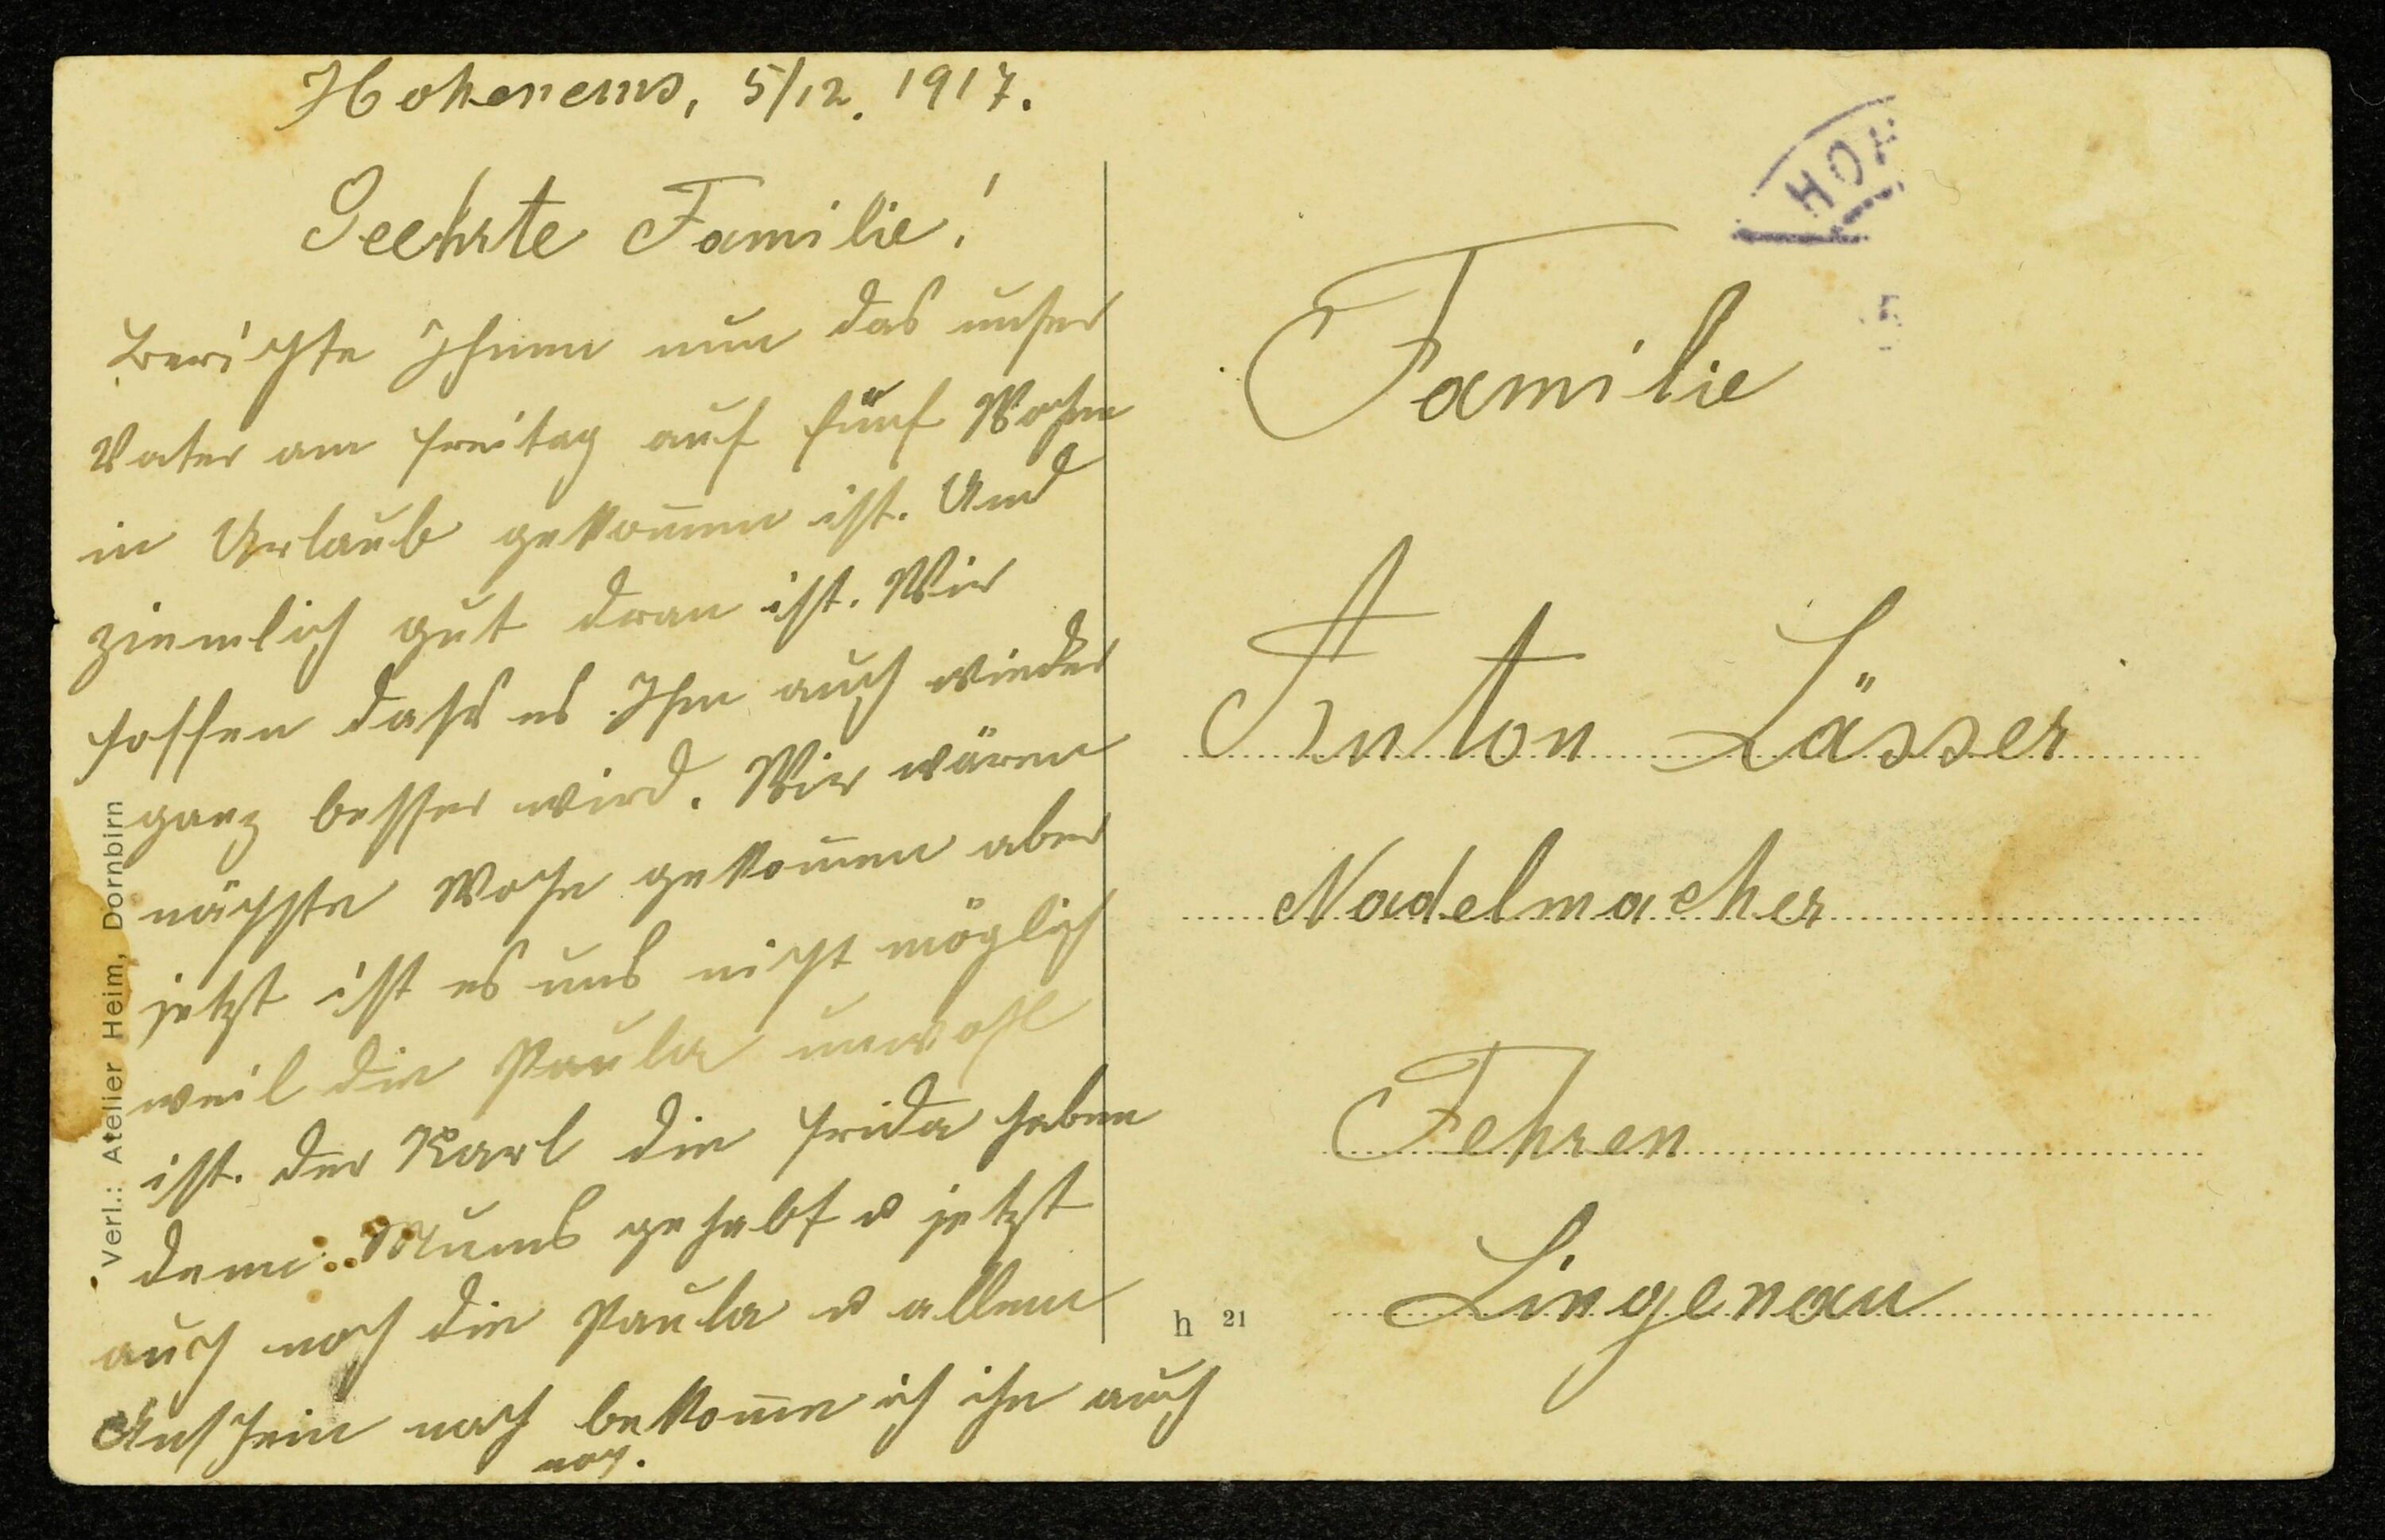 Hohenems, 5/12. 1917.
Geehrte Familie!
Berichte Ihnen nun das unser
Vater am Freitag auf fünf Wochen
in Urlaub gekommen ist. Und
ziemlich gut dran ist. Wir
hoffen dass es Ihm auch wieder
ganz besser wird. Wir wären
nächste Woche gekommen aber
jetzt ist es uns nicht möglich
weil die Paula unwohl
ist. der Karl die Frida haben
denn Mums gehabt u jetzt
auch noch die Paula u allem
Anschein nach bekomme ich ihn auch
noch.
Verl.: Atelier Heim, Dornbirn
HOH
Familie
Anton Lässer
Nadelmacher
Fehren
Lingenau
h 21